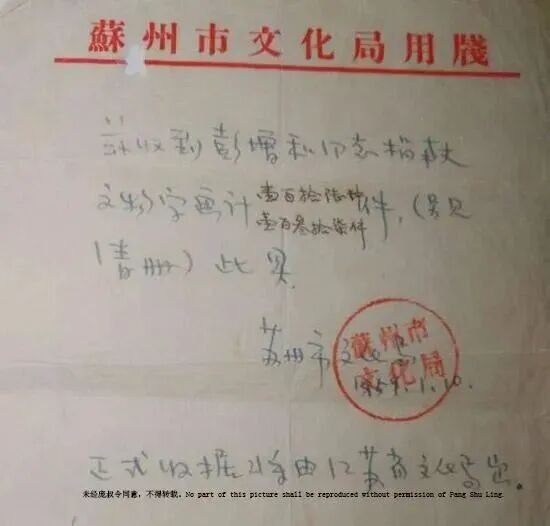 蘇州市文化局用牋
兹收到彭增和同志捐献
文物字画计壹百拾陆种
壹百叁拾柒件件，（另见
清册）此具
苏州市文化局
蘇州市
文化局
1959.1.10.
正式收据将由江苏省文化局出
未经庞权令同意，不得转载。No part of this picture shall be reproduced without permission of Pang Shu Ling.